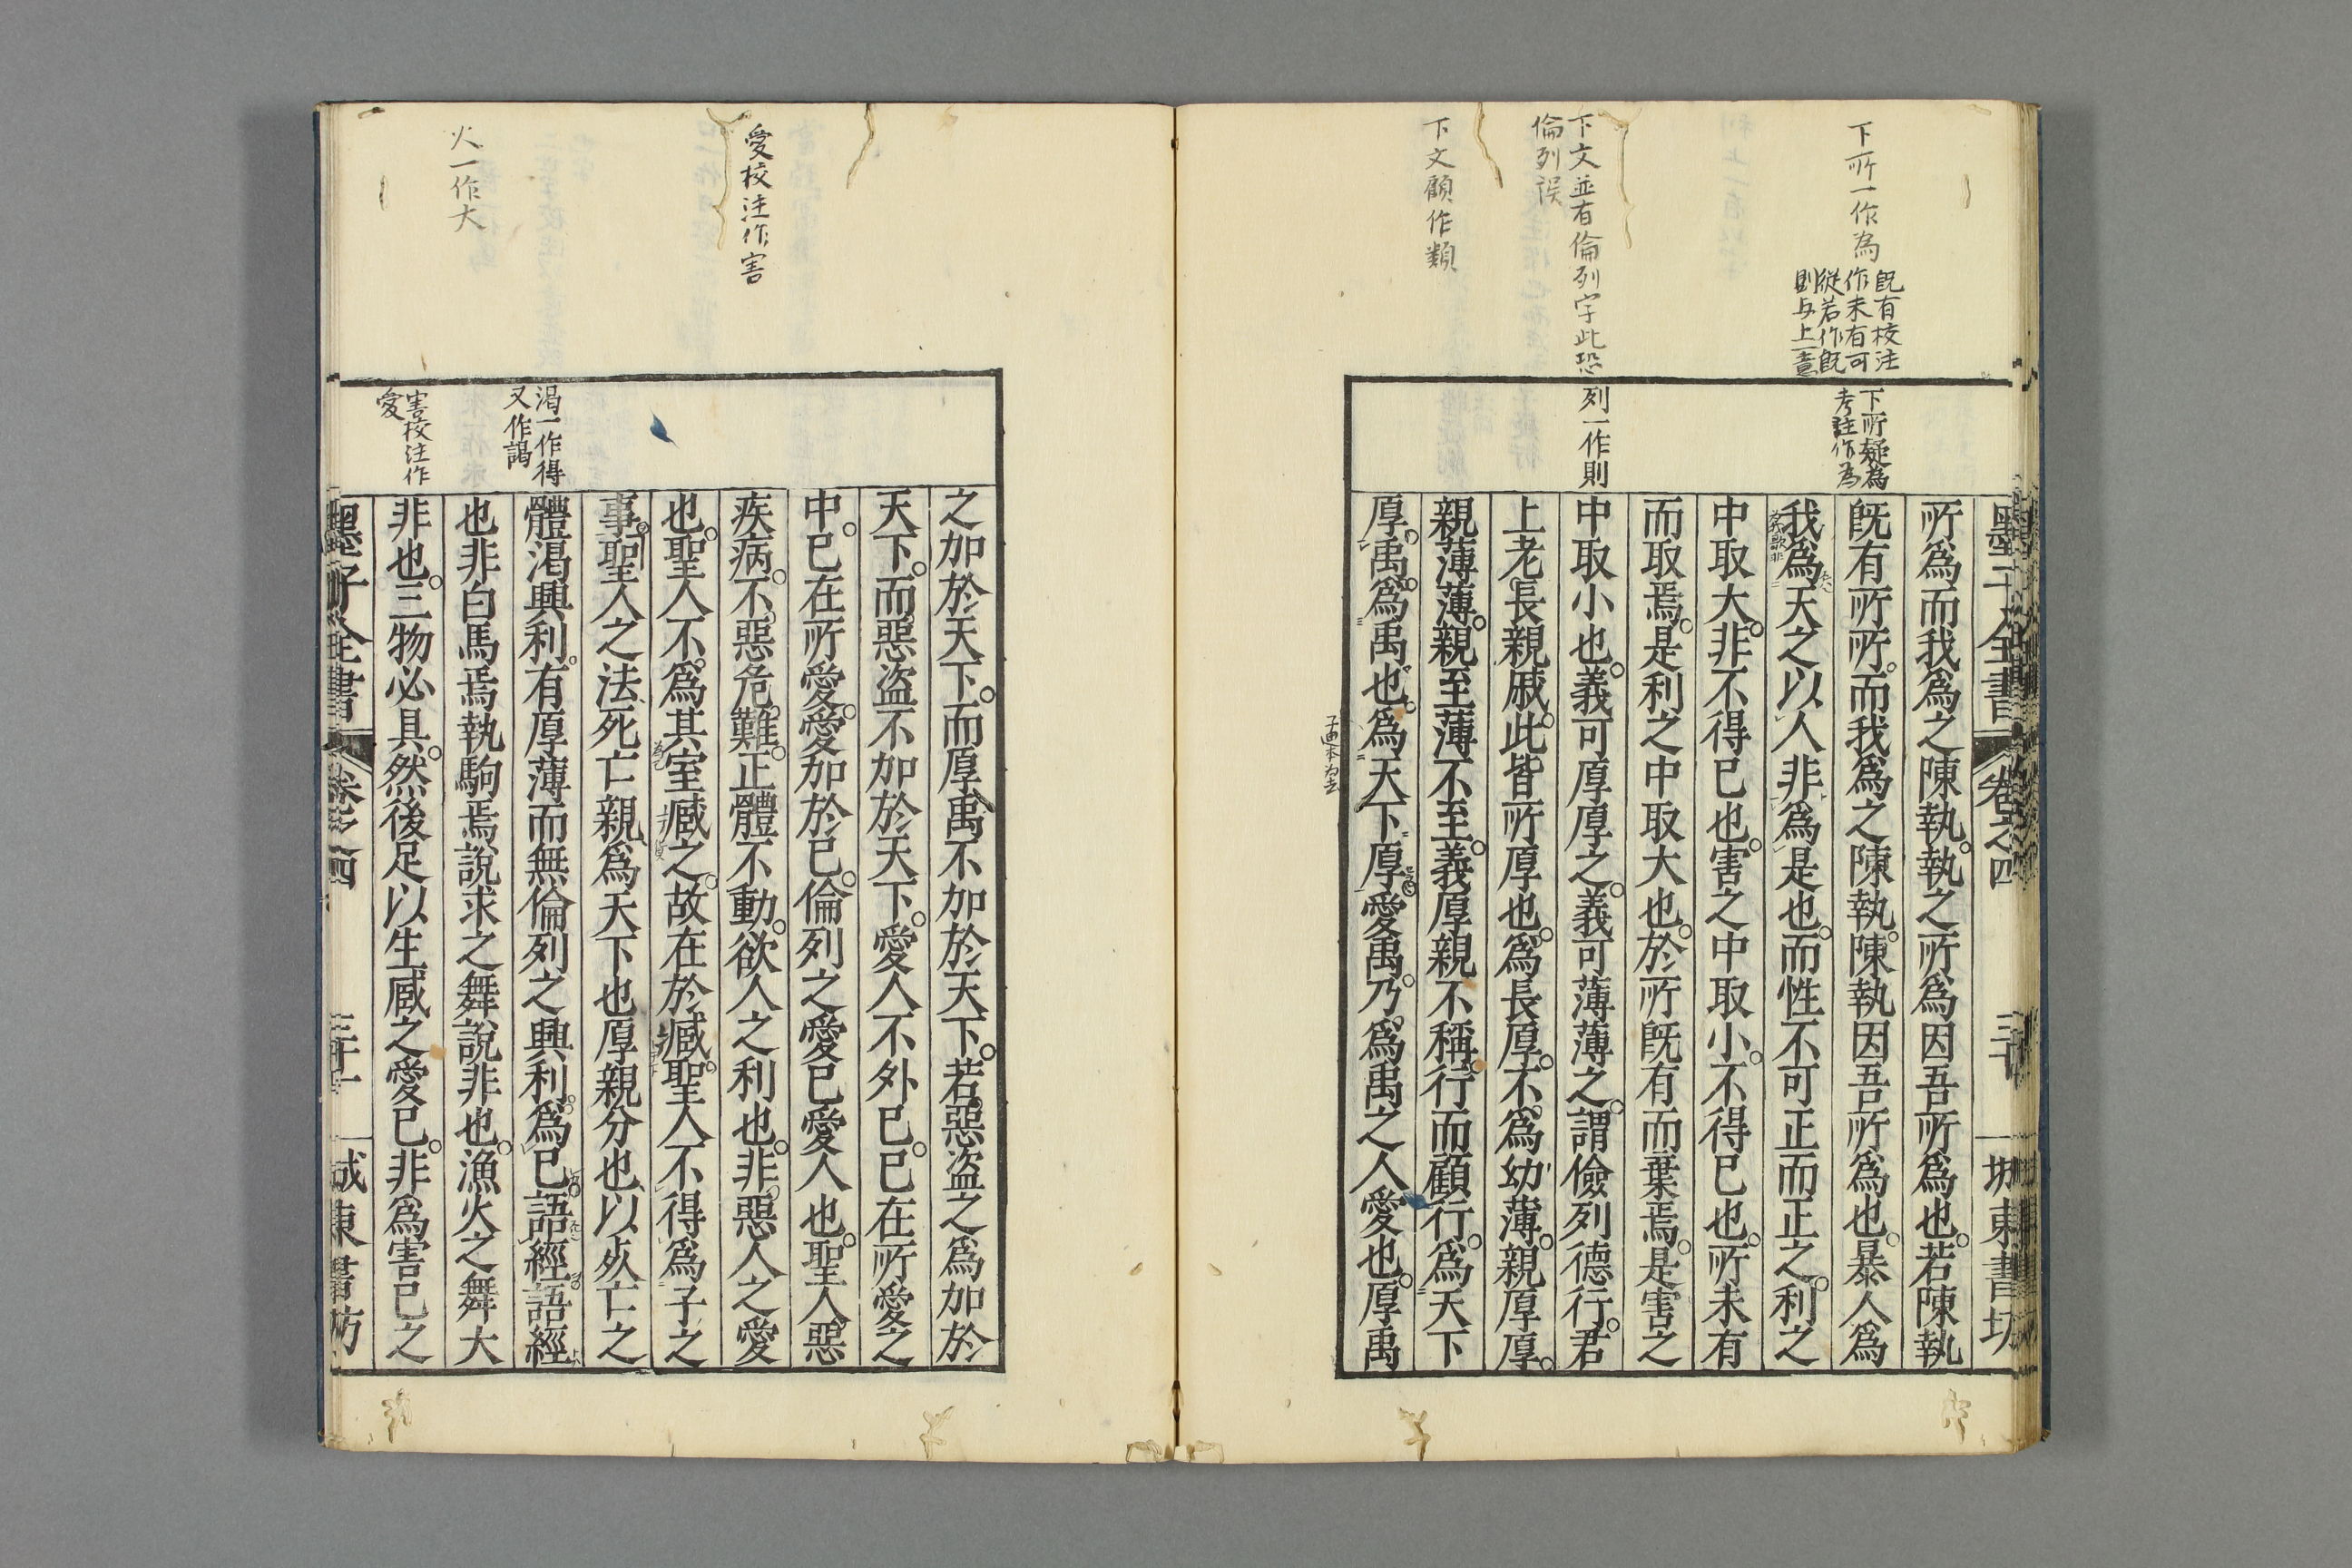 下所一作為
既有校注
作未有可
從若作既
則与上意
下文並有倫列字此恐
倫列誤
下文顧作類
下所疑為
考注作為
列一作則
墨子全書 卷之四 三十 城東書坊
所爲而我爲之陳執執之所爲因吾所爲也若陳執
旣有所所而我爲之陳執陳執因吾所爲也暴人爲
我爲天之以人非爲是也而性不可正而正之利之
中取大非不得已也害之中取小不得已也所未有
而取焉是利之中取大也於所旣有而棄焉是害之
中取小也義可厚厚之義可薄薄之謂儉列德行君
上老長親戚此皆所厚也爲長厚不爲幼薄親厚厚
親薄薄親至薄不至義厚親不稱行而顧行爲天下
厚禹爲禹也爲天下厚愛禹乃爲禹之人愛也厚禹
愛校注作害
火一作大
渴一作得
又作謁
害校注作
愛
之加於天下而厚禹不加於天下若惡盜之爲加於
天下而惡盜不加於天下愛人不外已已在所愛之
中已在所愛愛加於已倫列之愛已愛人也聖人惡
疾病不惡危難正體不動欲人之利也非惡人之愛
也聖人不爲其室臧之故在於臧聖人不得爲子之
事聖人之法死亡親爲天下也厚親分也以死亡之
體渴興利有厚薄而無倫列之興利爲已語經語經
也非白馬焉執駒焉說求之舞說非也漁火之舞大
非也三物必具然後足以生臧之愛已非爲害已之
墨子全書 卷之四 三十一 城東書坊